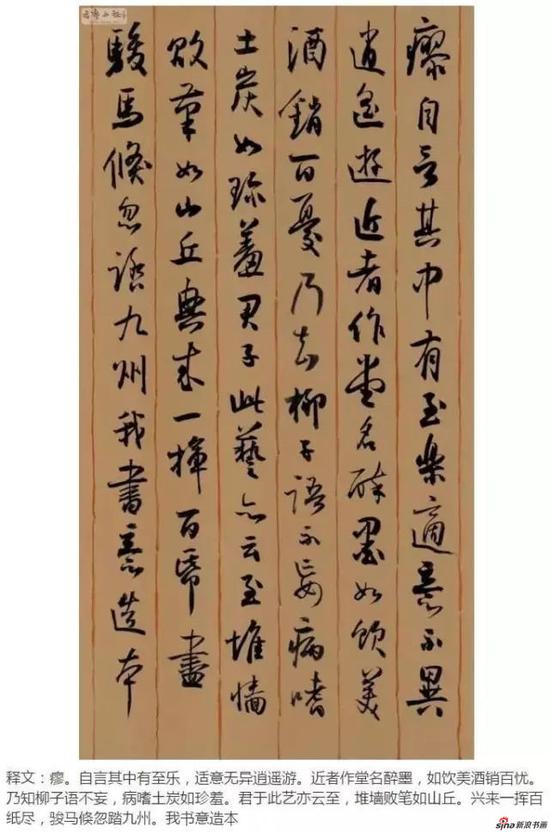 瘳自言其中有至樂適意不異
逍遥遊近者作堂名醉墨如飲美
酒銷百憂乃知柳子語不妄病嗜
土炭如珍羞君于此藝亦云至堆墻
敗筆如山丘興来一揮百帋盡
駿馬倏忽踏九州我書意造本
释文：瘳。自言其中有至乐，适意无异逍遥游。近者作堂名醉墨，如饮美酒销百忧。
乃知柳子语不妄，病嗜土炭如珍羞。君于此艺亦云至，堆墙败笔如山丘。兴来一挥百
纸尽，骏马倏忽踏九州。我书意造本
sina新浪书画